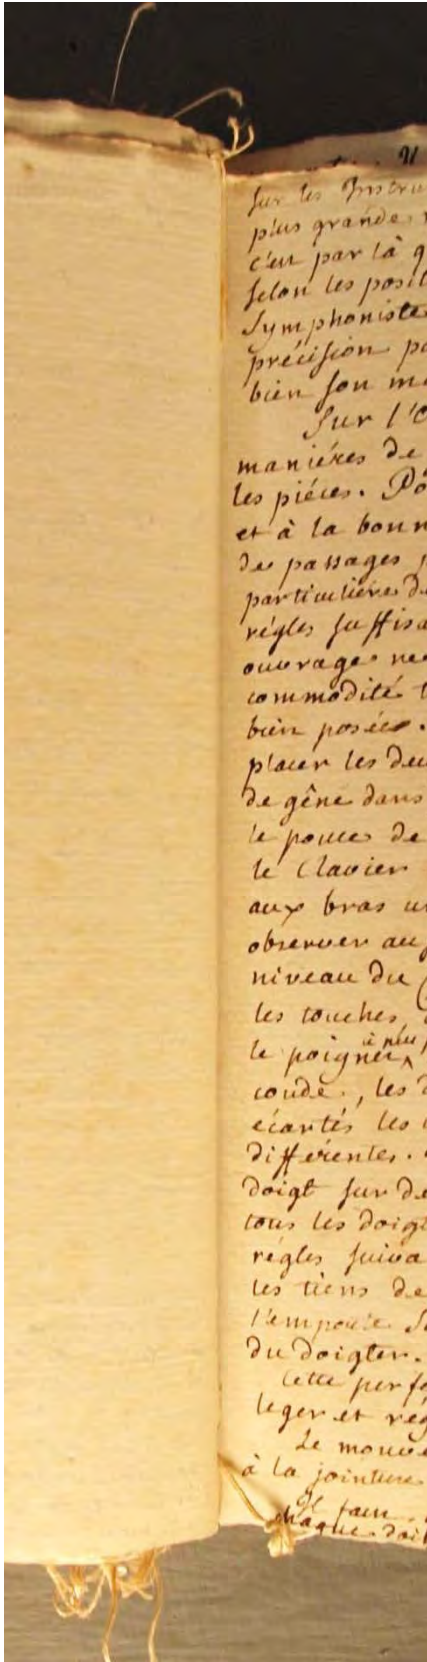 sur les Instru
plus grande
c'est par là q
selon les posit
Symphoniste
précision pa
bien son me
Sur l'O
manières de
les piéces. Pó
et à la bonn
de passages
particulières de
régles suffisa
ouvrage ne
commodité t
bien posées.
placer les deu
de gêne dans
le pouce de
le Clavier
aux bras un
observer au
niveau du C
les touches,
le poignet à peu p
coude, les d
écartés les
différentes.
doigt sur de
tous les doigt
régles suiva
les tiens de
l'emporte Su
du doigter.
Cette perfe
leger et rég
Le mouve
à la jointure
Il faut
chaque doi